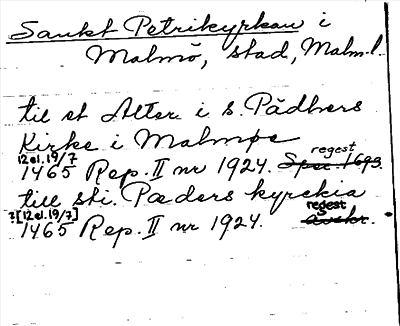 Sankt Petrikyrkan i
Malmö, stad, Malm.l.
til et Alter i S. Pädhers
Kirke i Malmøe
12 el. 19/7 regest
1465 Rep. II nr 1924. Spec. 1693.
till sti. Pæders kyrckia
?[12 el. 19/7] regest
1465 Rep. II nr 1924. avskr.